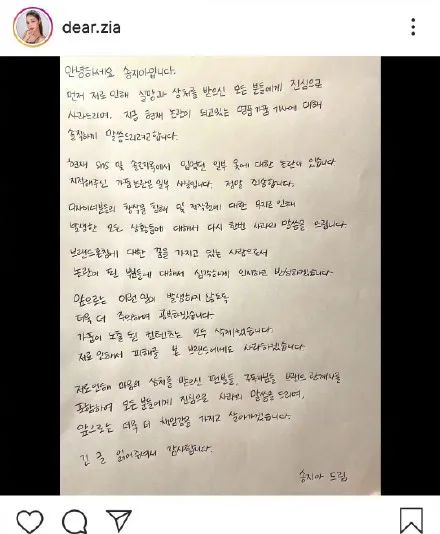 dear.zia
안녕하세요 송지아입니다.
먼저 저로 인해 실망과 상처를 받으신 모든 분들에게 진심으로
사과드리며, 지금 현재 논란이 되고있는 명품가품 기사에 대해
솔직하게 말씀드리려고합니다.
현재 SNS 및 솔로지옥에서 입었던 일부 옷에 대한 논란이 있습니다
지적해주신 가품논란은 일부 사실입니다. 정말 죄송합니다.
디자이너분들의 창작물 침해 및 저작권에 대한 무지로 인해
발생한 모든 상황들에 대해서 다시 한번 사과의 말씀을 드립니다.
브랜드론칭에 대한 꿈을 가지고 있는 사람으로서
논란이 된 부분들에 대해서 심각하게 인지하고 반성하겠습니다
앞으로는 이런 일이 발생하지 않도록
더욱 더 주의하며 공부하겠습니다.
가품이 노출 된 컨텐츠는 모두 삭제하였습니다.
저로 인해서 피해를 본 브랜드에게도 사과하겠습니다
저로인해 마음의 상처를 받으신 팬분들, 구독자님들 브랜드 관계사를
포함하여 모든 분들에게 진심으로 사과의 말씀을 드리며,
앞으로는 더욱 더 책임감을 가지고 살아가겠습니다.
긴 글 읽어주셔서 감사합니다.
송지아 드림